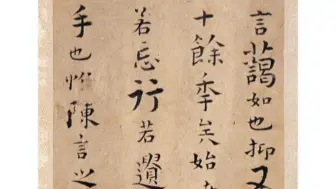 言藹如也抑又
十餘季矣始
若忘行若遺
手也惟陳言之